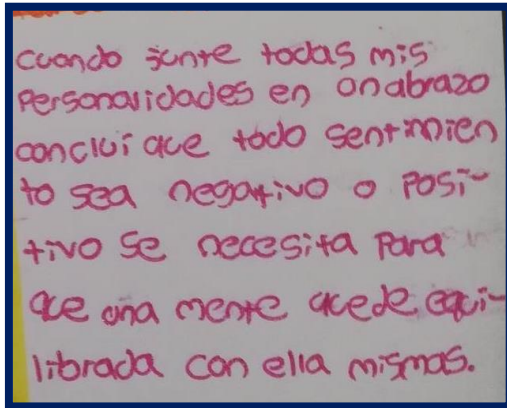 cuando junte todas mis
personalidades en onabrazo
concluí que todo sentimien
to sea negativo o posi-
tivo se necesita para
que una mente quede equi-
librada con ella mismas.